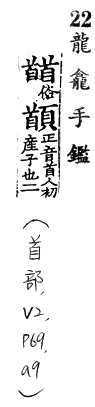 22 龍龕手鑑
俗正音首人初産子也二
(首部, V2, P69, a9)